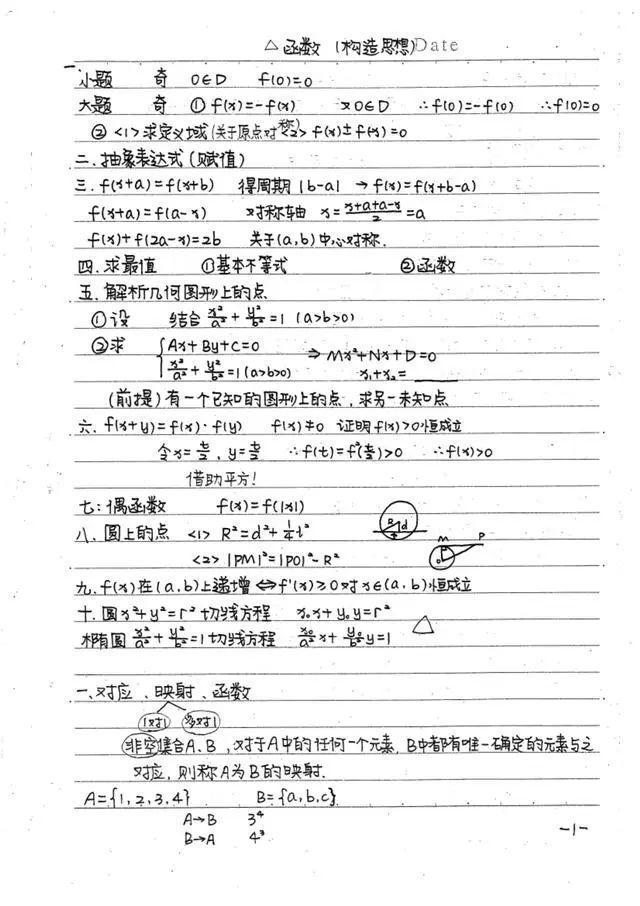 △函数 (构造思想) Date
一 小题 奇 0∈D f(0)=0
大题 奇 ① f(x)=-f(x) 又0∈D ∴f(0)=-f(0) ∴f(0)=0
② <1>求定义域(关于原点对称)<2> f(x)±f(-x)=0
二. 抽象表达式(赋值)
三. f(x+a)=f(x+b) 得周期 |b-a| → f(x)=f(x+b-a)
f(x+a)=f(a-x) 对称轴 x=\frac{x+a+a-x}{2}=a
f(x)+f(2a-x)=2b 关于(a,b)中心对称.
四. 求最值 ①基本不等式 ②函数
五. 解析几何图形上的点
①设 结合 \frac{x²}{a²}+\frac{y²}{b²}=1 (a>b>0)
②求 { Ax+By+C=0 ⇒ Mx²+Nx+D=0
\frac{x²}{a²}+\frac{y²}{b²}=1(a>b>0) x₁+x₂=____
(前提)有一个已知的图形上的点,求另一未知点
六. f(x+y)=f(x)·f(y) f(x)≠0 证明f(x)>0恒成立
令x=\frac{t}{2}, y=\frac{t}{2} ∴f(t)=f²(\frac{t}{2})>0 ∴f(x)>0
借助平方!
七: 偶函数 f(x)=f(|x|)
八. 圆上的点 <1> R²=d²+\frac{1}{4}l² R d
<2> |PM|²=|PO|²-R² M P
九. f(x)在(a,b)上递增⇔f'(x)≥0对x∈(a,b)恒成立
十. 圆x²+y²=r²切线方程 x₀x+y₀y=r²
椭圆\frac{x²}{a²}+\frac{y²}{b²}=1切线方程 \frac{x₀}{a²}x+\frac{y₀}{b²}y=1 △
一. 对应、映射、函数
1对1 多对1
非空集合A、B,对于A中的任何一个元素,B中都有唯一确定的元素与之
对应,则称A为B的映射.
A={1,2,3,4} B={a,b,c}
A→B 3⁴
B→A 4³
-1-